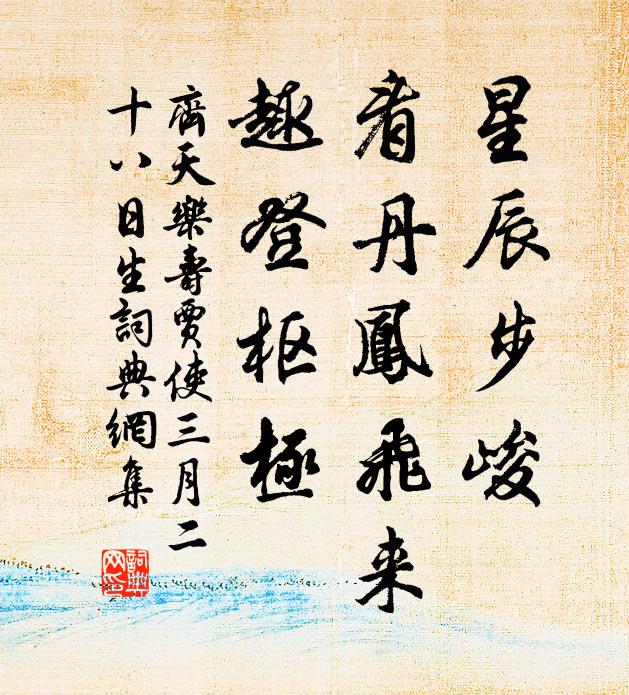 星辰步峻
看丹鳳飛来
趣登枢極
齊天樂壽賈使三月二
十八日生詞典網集
詞典网印